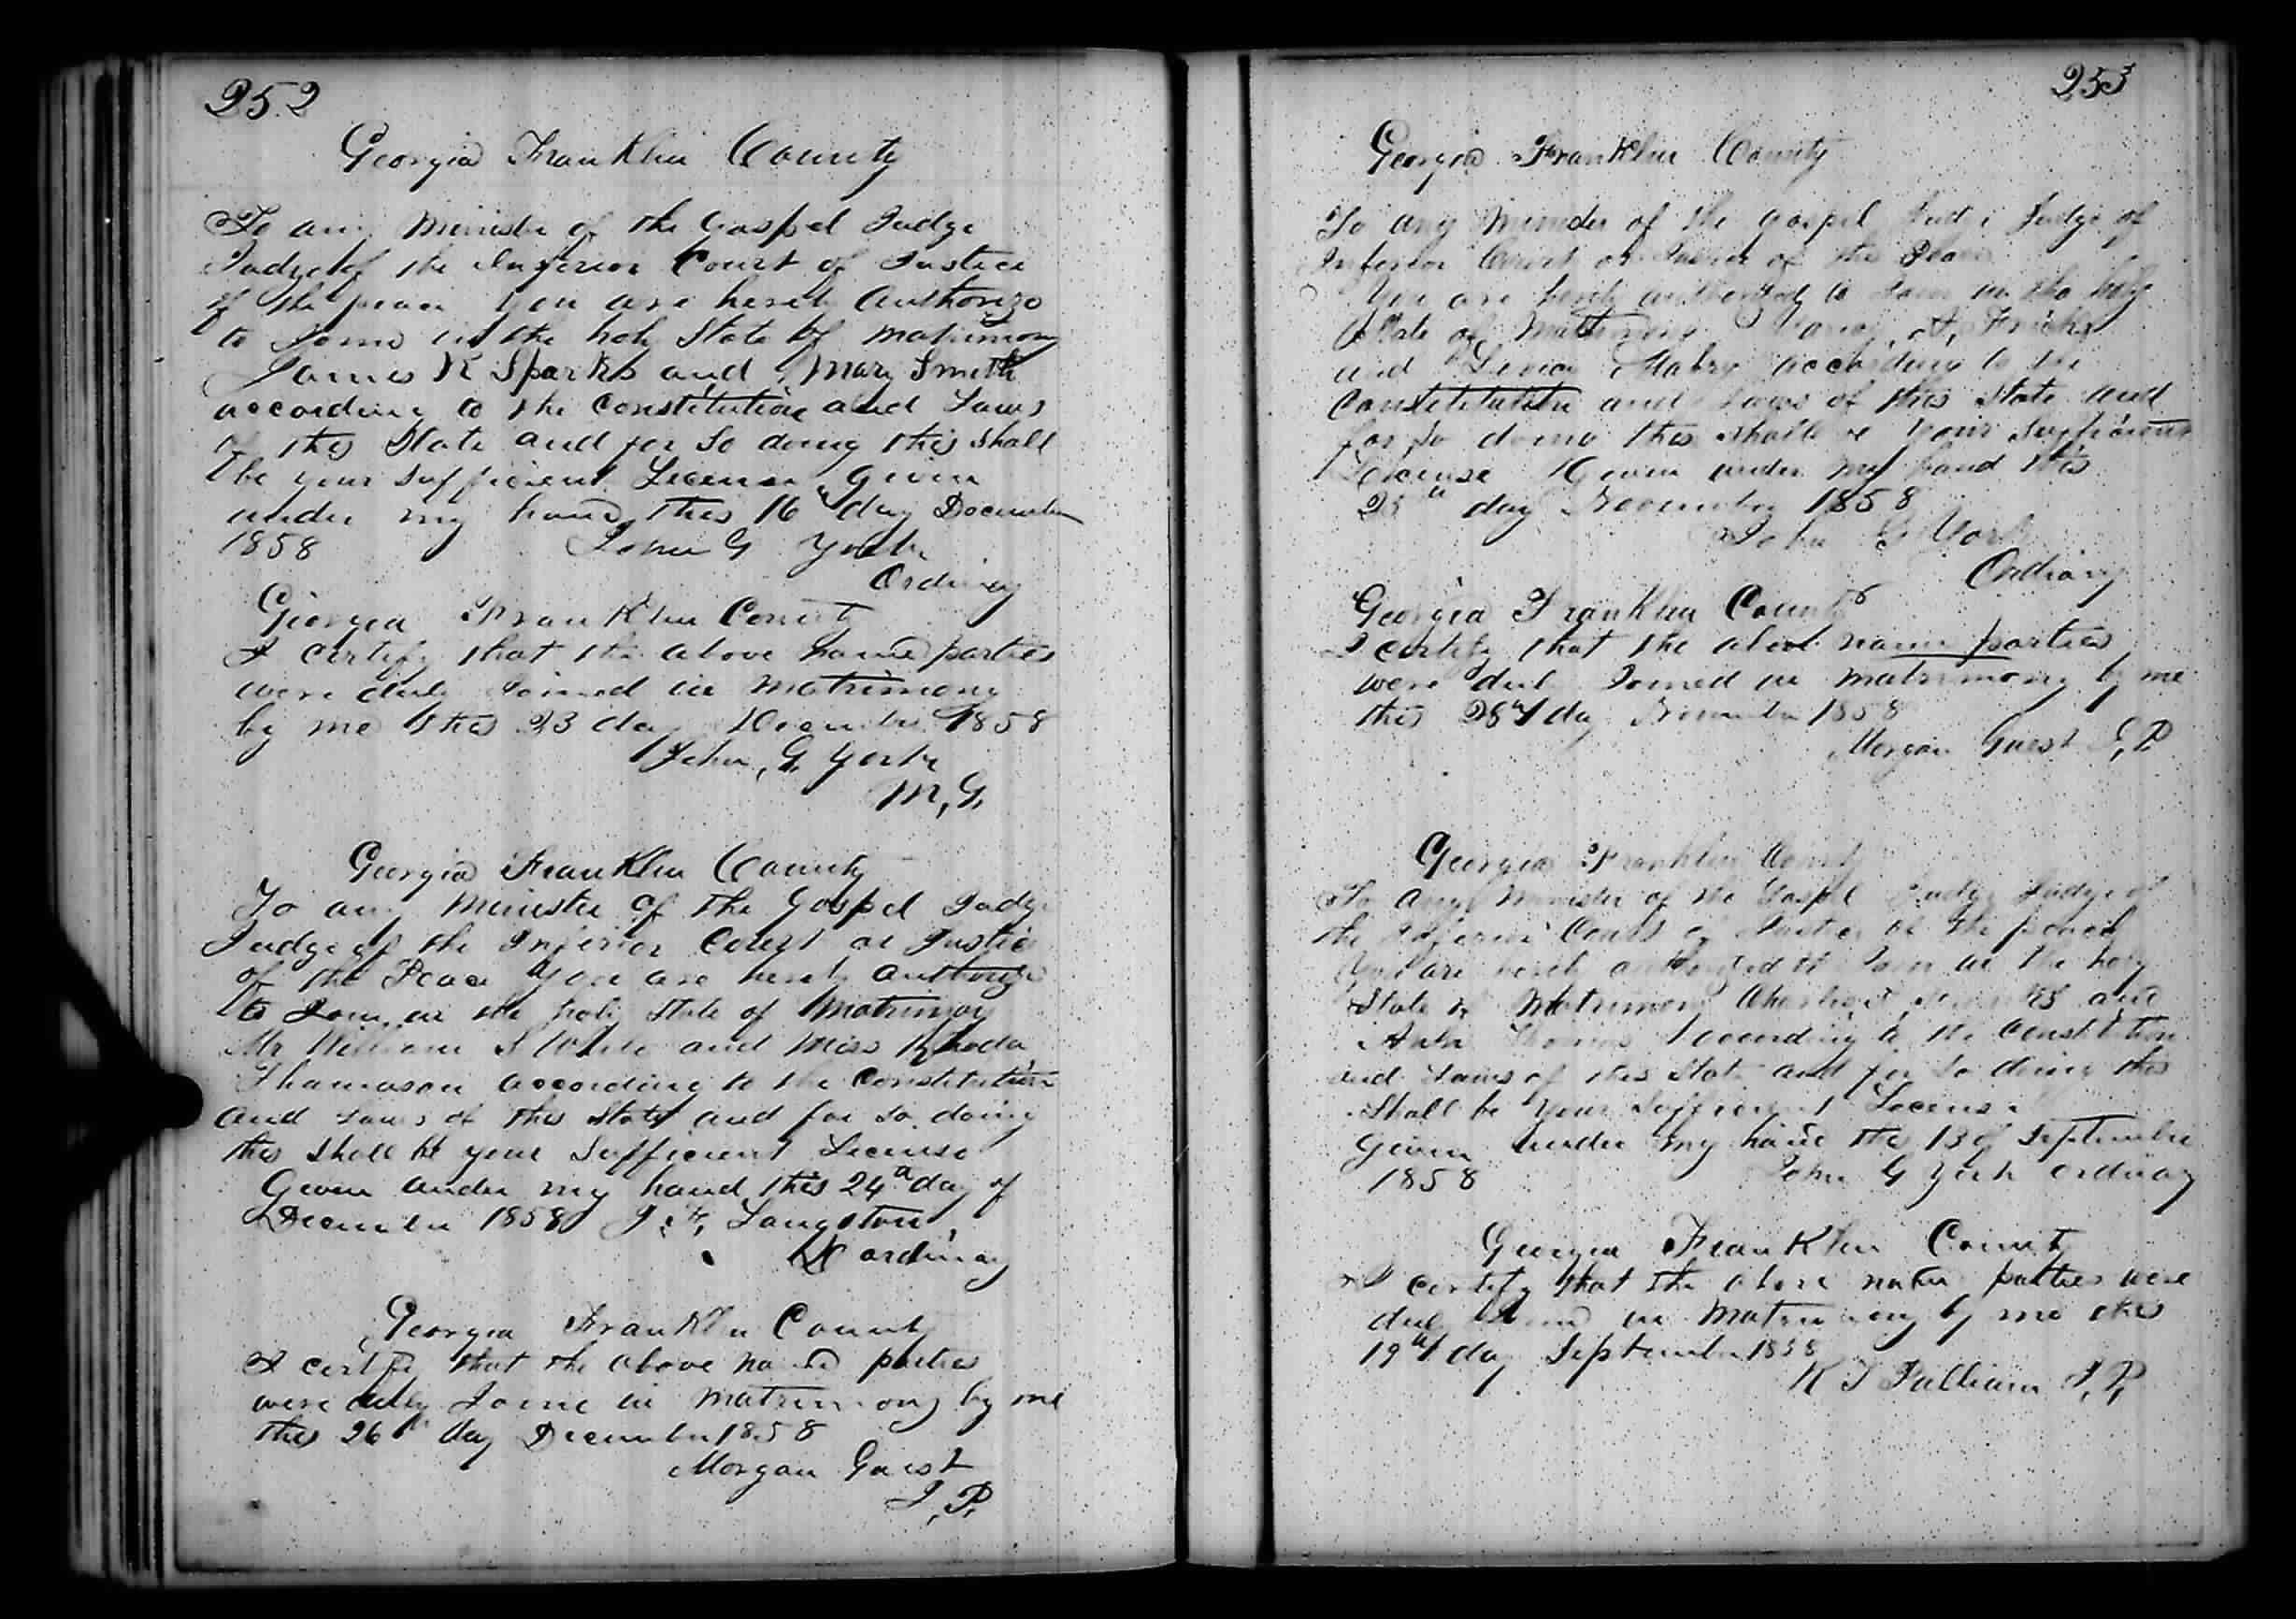 252
Georgia Franklin County
To any Minister of the Gospel Judge
Judge of the Inferior Court of Justice
of the peace you are hereby Authorize
to Joine in the holy State of matrimony
James R Sparks and Mary Smith
according to the Constitution and Laws
of this State and for So doing this Shall
be your Sufficient License Given
under my hand this 16th day December
1858 John G York
Ordinary
Georgia Franklin County
I Certify that the above named parties
were duly Joined in matrimony
by me this 23 day December 1858
John, G, York
M, G,
Georgia Franklin County
To any Minister of the Gospel Judge
Judge of the Inferior Court or Justice
of the Peace You are hereby authorize
to Join in the holy State of Matrimony
Mr William S White and Miss Rhoda
Thomason according to the Constitution
and Laws of this State and for So doing
this Shall be your Sufficient License
Given under my hand this 24th day of
December 1858 J. F, Langston
D ordinary
Georgia Franklin County
I certify that the above named parties
were duly Joine in matrimony by me
this 26th day December 1858
Morgan Guest
J, P,
253
Georgia Franklin County
To any Minister of the gospel Judge of
Inferior Court or Justice of the Peace
You are hereby authorized to Join in the holy
State of Matrimony
and Mabry according to the
Constitution and Laws of this State and
for So doing this Shall be Your Sufficient
License Given under my hand this
day November 1858
John G York
Ordinary
Georgia Franklin County
I certify that the above name parties
were duly Joined in matrimony by me
this 28th day November 1858
Morgan Guest J, P,
Georgia Franklin County
To any Minister of the Gospel Judge Judge of
the Inferior Court or Justice of the peace
You are hereby authorized to Join in the holy
State of Matrimony and
Thomas According to the Constitution
and Laws of this State and for So doing this
Shall be Your Sufficient License
Given under my hand this 13 of September
1858 John G York ordinary
Georgia Franklin County
I certify that the above name parties were
duly Joined in Matrimony by me this
19th day September 1858
K T Pulliam J, P,